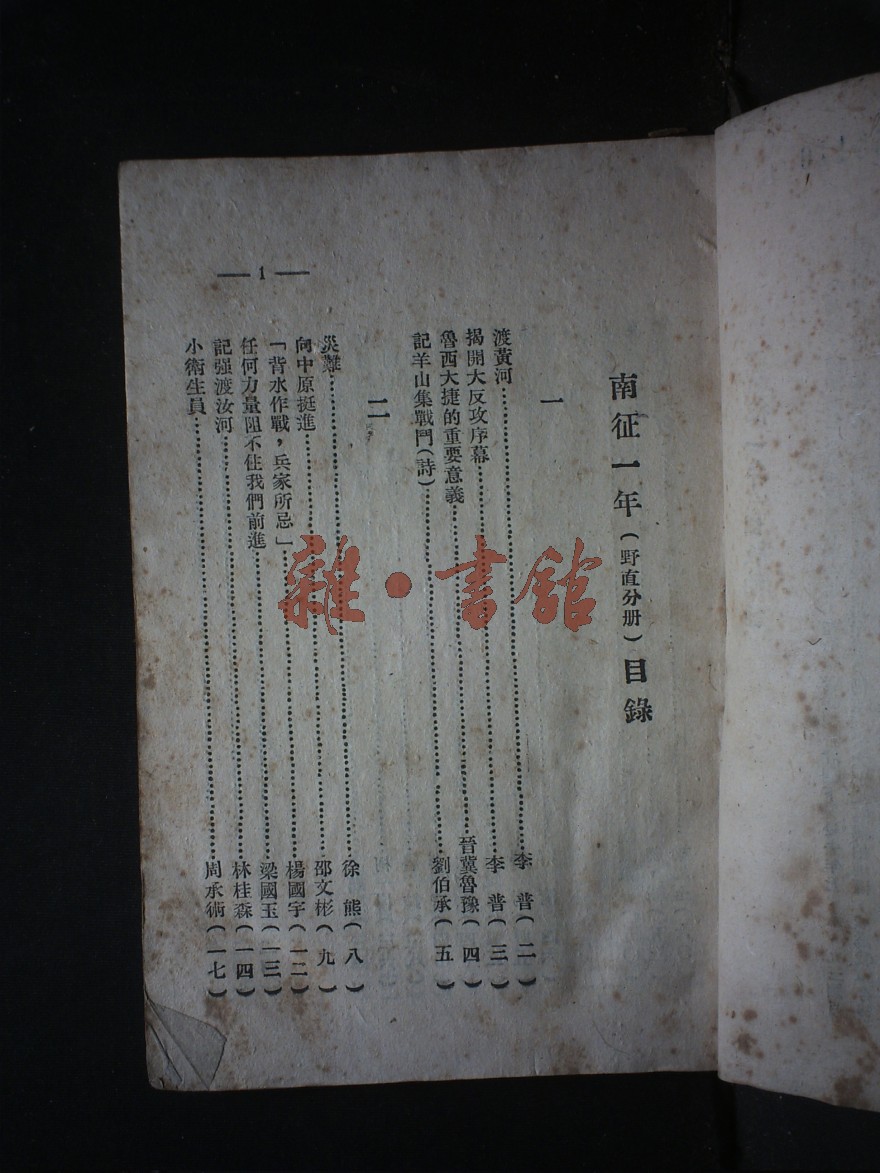 南征一年(野直分册)目錄
一
渡黃河……李普(二)
揭開大反攻序幕……李普(三)
魯西大捷的重要意義……晉冀魯豫(四)
記羊山集戰鬥(詩)……劉伯承(五)
二
災難……徐熊(八)
向中原挺進……邵文彬(九)
「背水作戰，兵家所忌」……楊國宇(一二)
任何力量阻不住我們前進……梁國玉(一三)
記强渡汝河……林桂森(一四)
小衛生員……周承術(一七)
— 1 —
雜·書館